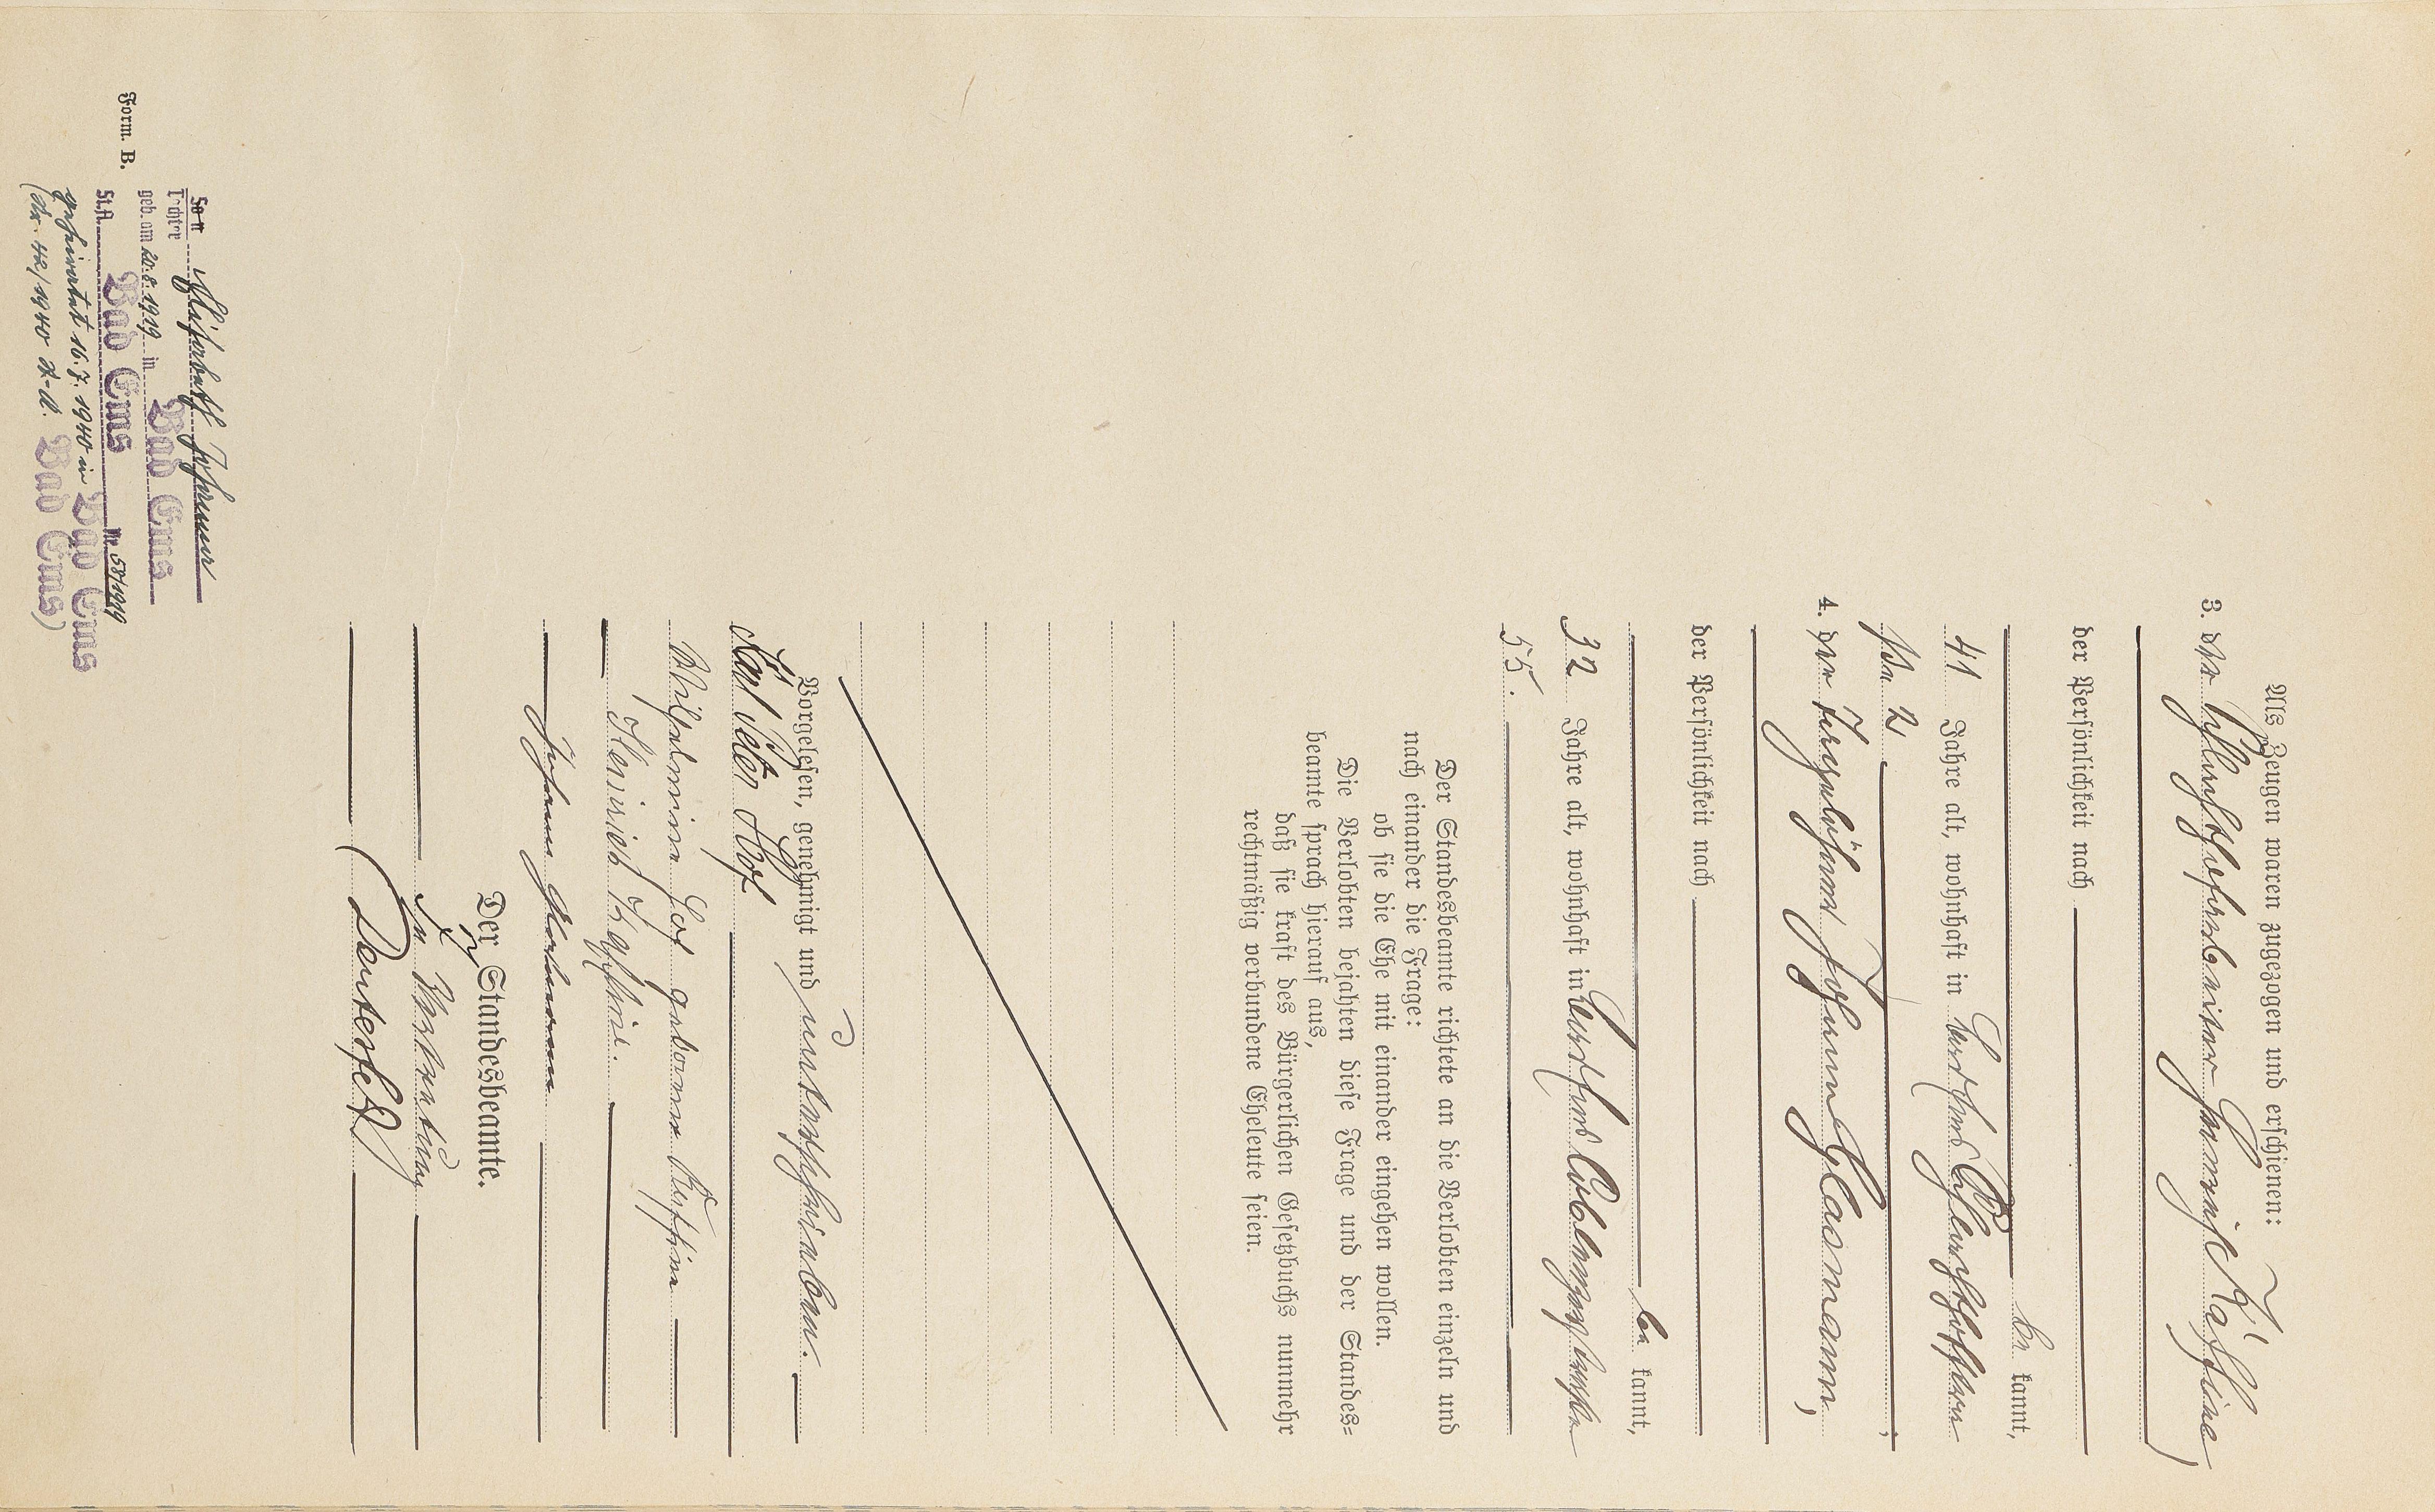 Als Zeugen waren zugezogen und erschienen:
3. der Schlachthofarbeiter Heinrich Käpfine
der Persönlichkeit nach
be kannt,
41 Jahre alt, wohnhaft in Bad Ems
No. 2
4. der Johann Glasmann,
der Persönlichkeit nach
be kannt,
32 Jahre alt, wohnhaft in
55.
Der Standesbeamte richtete an die Verlobten einzeln und
nach einander die Frage:
ob sie die Ehe mit einander eingehen wollen.
Die Verlobten bejahten diese Frage und der Standes-
beamte sprach hierauf aus,
daß sie kraft des Bürgerlichen Gesetzbuchs nunmehr
rechtmäßig verbundene Eheleute seien.
Vorgelesen, genehmigt und unterschrieben.
Karl Peter Hof
Wilhelmine Hof geborene
Heinrich
Johann Glasmann
Der Standesbeamte.
In Vertretung
Form. B.
Sohn
Tochter Elisabeth Johanna
geb. am 20.8.1919 in Bad Ems
St.A. Bad Ems Nr. 58/1919
geheiratet 16.7.1940 in Bad Ems
(Nr. 42/1940 St.A. Bad Ems)